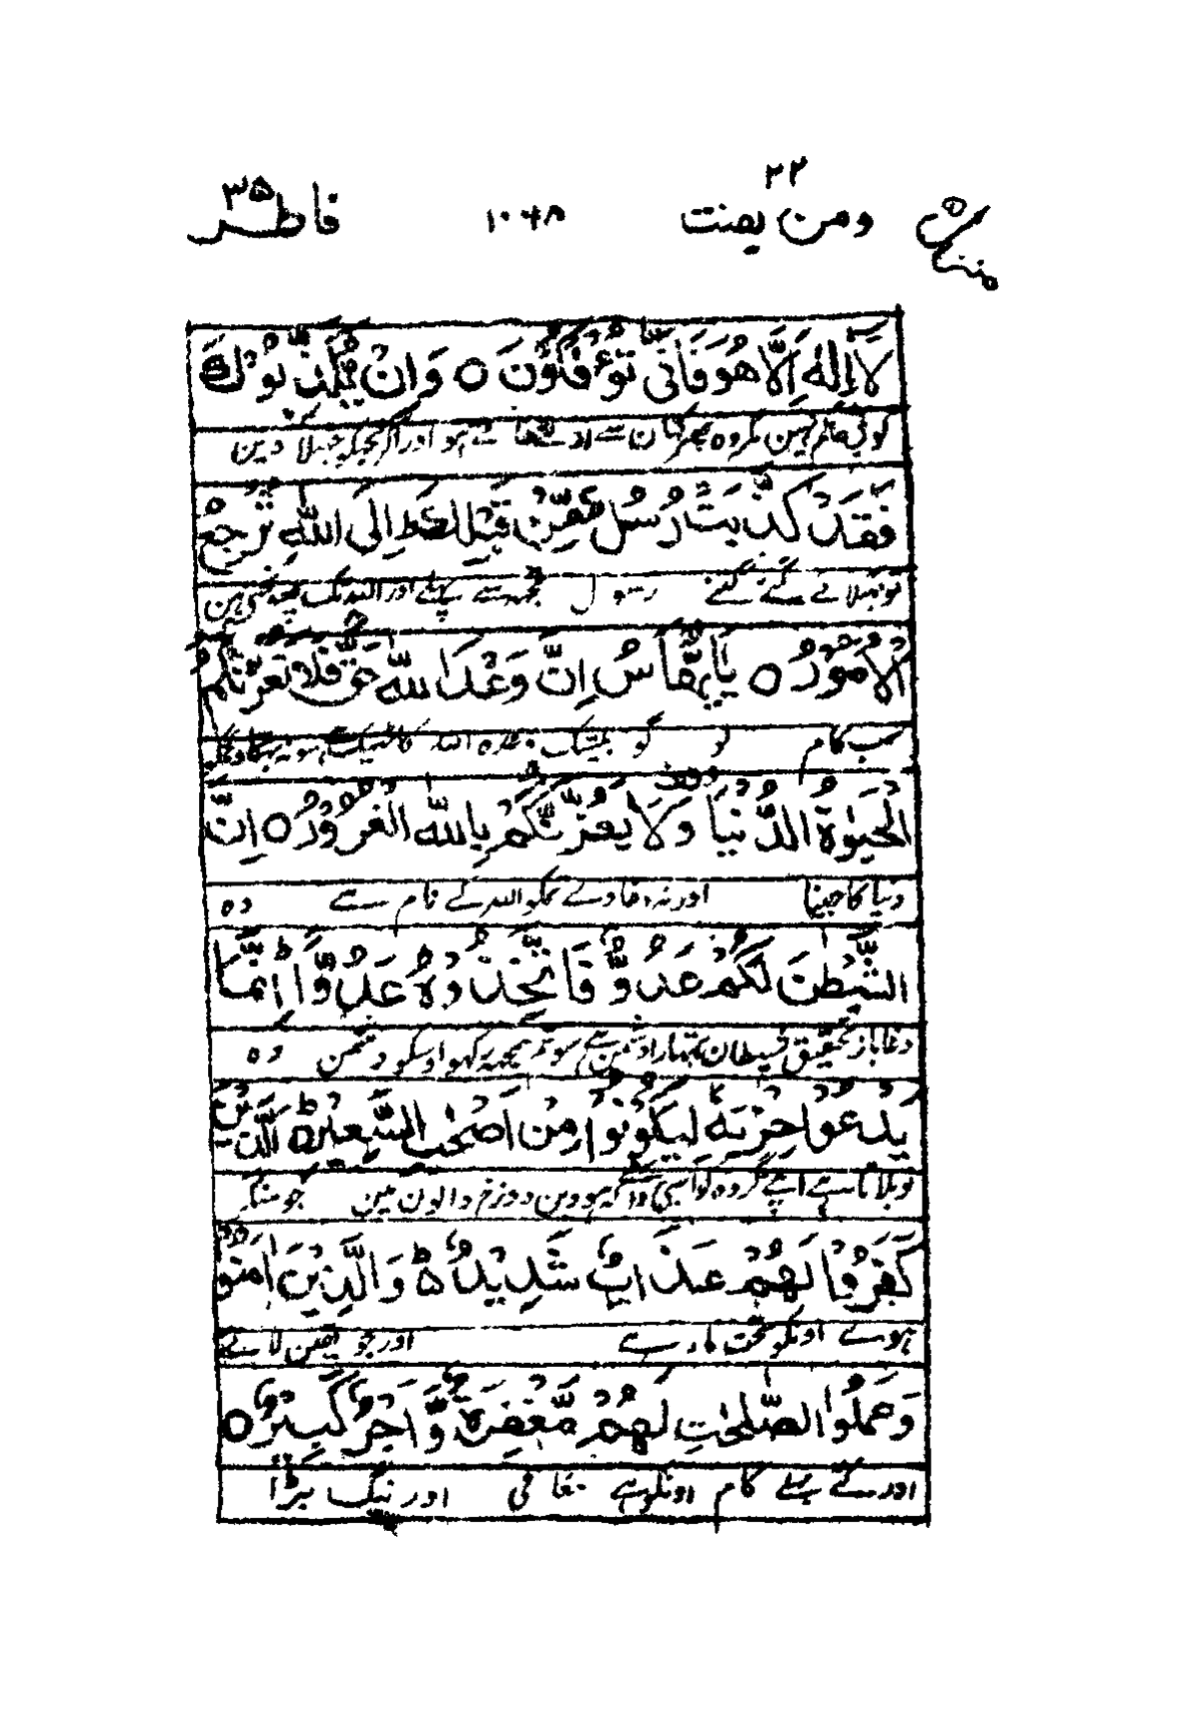 ۲۲
ومن یقنت ۱۰۴۸ فاطر ۳۵
لَاۤ اِلٰهَ اِلَّا هُوَ فَاَنّٰى تُؤْفَكُوْنَ ○ وَاِنْ يُّكَذِّبُوْكَ
کوئی حاکم نہین مگر وہ پھر کہان سے اولٹے جاتے ہو اور اگر تجھکو جھٹلا دین
فَقَدْ كُذِّبَتْ رُسُلٌ مِّنْ قَبْلِكَ ط اِلَى اللّٰهِ تُرْجَعُ
تو جھٹلائے گئے کتنے رسول تجھہ سے پہلے اور اللہ تک پہنچتے ہین
الْاُمُوْرُ ○ يٰۤاَيُّهَا النَّاسُ اِنَّ وَعْدَ اللّٰهِ حَقٌّ فَلَا تَغُرَّنَّكُمُ
سب کام لوگو بیشک وعدہ اللہ کا ٹھیک ہے سو نہ بہکاوے تمکو
الْحَيٰوةُ الدُّنْيَا وقفة وَلَا يَغُرَّنَّكُمْ بِاللّٰهِ الْغَرُوْرُ ○ اِنَّ
دنیا کا جینا اور نہ دغا دے تمکو اللہ کے نام سے وہ
الشَّيْطٰنَ لَكُمْ عَدُوٌّ فَاتَّخِذُوْهُ عَدُوًّا ط اِنَّمَا
دغاباز تحقیق شیطان تمہارا دشمن ہے سو تم سمجھہ رکھو اوسکو دشمن وہ
يَدْعُوْا حِزْبَهٗ لِيَكُوْنُوْا مِنْ اَصْحٰبِ السَّعِيْرِ ط اَلَّذِيْنَ
تو بلاتا ہے اپنے گروہ کو اسی واسطے کہ ہووین دوزخ والون مین جو منکر
كَفَرُوْا لَهُمْ عَذَابٌ شَدِيْدٌ ط وَالَّذِيْنَ اٰمَنُوْا
ہوئے اونکو سخت مار ہے اور جو یقین لائے
وَعَمِلُوا الصّٰلِحٰتِ لَهُمْ مَّغْفِرَةٌ وَّاَجْرٌ كَبِيْرٌ ○
اور کئے بھلے کام اونکو ہے معافی اور نیگ بڑا